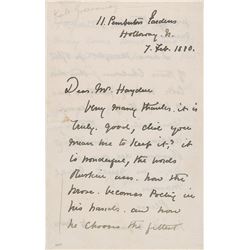 11. Pemberton Gardens
Holloway. N.
7. Feb. 1880.
Dear. Mr. Hayden
Very many thanks. it is
truly. good, did you
mean me to keep it? it
is wonderful, the words
Ruskin uses. how the
prose. becomes Poetry in
his hands. and how
he chooses the fittest